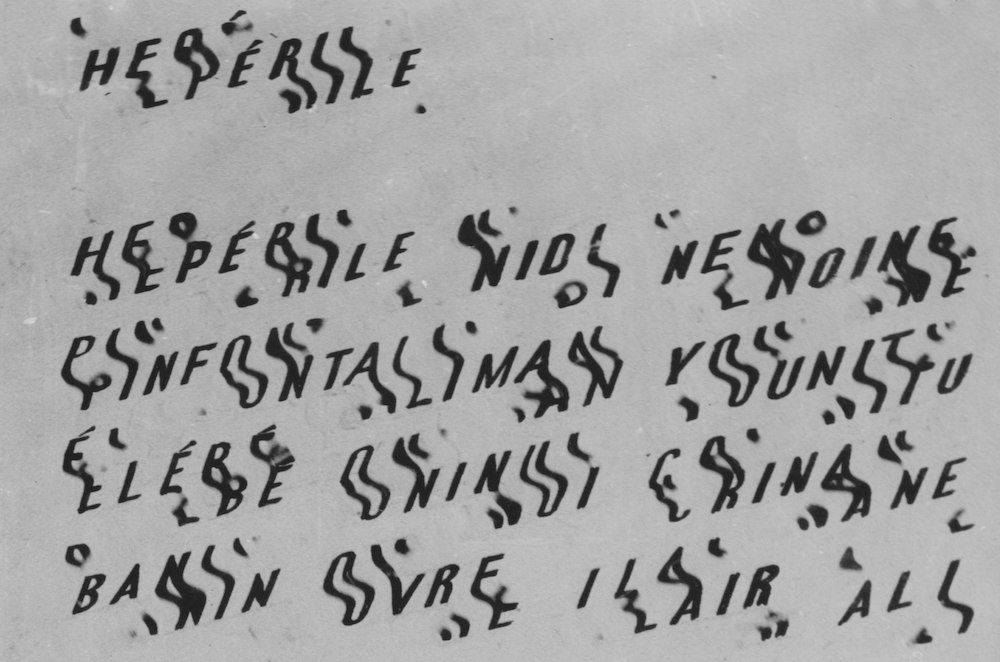 HEPÉRILE
HEPÉRILE NIDI NENOINE
PINFONTALIMAN YOUNITU
ÉLÉBÉ ONINOI CRINANE
BANIN OVRE ILAIR ALI